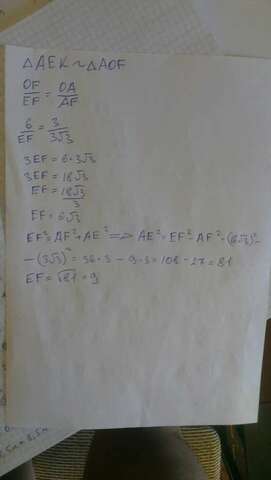 △AEK ~ △AOF
OF/EF = OA/AF
6/EF = 3/3√3
3EF = 6·3√3
3EF = 18√3
EF = 18√3/3
EF = 6√3
EF² = AF² + AE² => AE² = EF² - AF² = (6√3)² -
- (3√3)² = 36·3 - 9·3 = 108 - 27 = 81
EF = √81 = 9